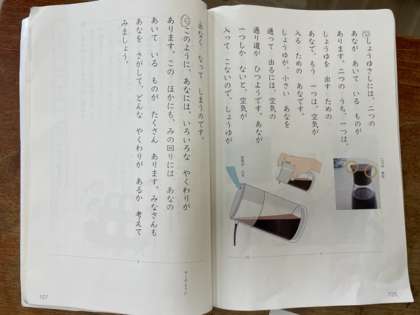 しょうゆさしには、二つの
あなが あいて いる ものが
あります。二つの うち、一つは、
しょうゆを 出す ための
あなで、もう 一つは、空気が
入る ための あなです。
しょうゆが、小さい あなを
通って 出るには、空気の
通り道が ひつようです。あなが
一つしか ないと、空気が
入って こないので、しょうゆが
出なく なって しまうのです。
このように、あなには、いろいろな やくわりが
あります。この ほかにも、みの回りには あなの
あいて いる ものが たくさん あります。みなさんも
あなを さがして、どんな やくわりが あるか 考えて
みましょう。
107